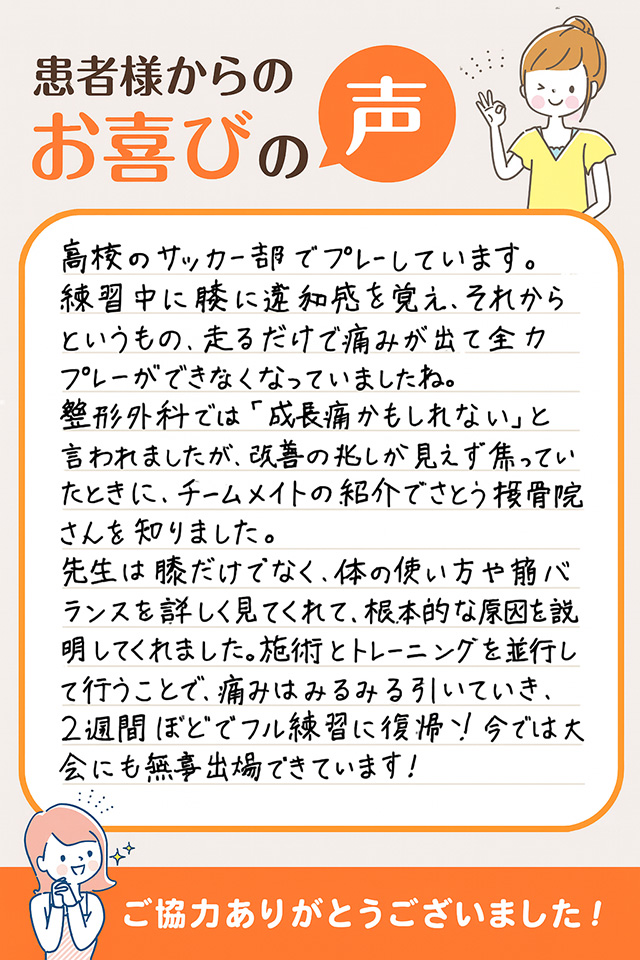 患者様からの
お喜びの声
高校のサッカー部でプレーしています。
練習中に膝に違和感を覚え、それから
というもの、走るだけで痛みが出て全力
プレーができなくなっていましたね。
整形外科では「成長痛かもしれない」と
言われましたが、改善の兆しが見えず焦ってい
たときに、チームメイトの紹介でさとう接骨院
さんを知りました。
先生は膝だけでなく、体の使い方や筋バ
ランスを詳しく見てくれて、根本的な原因を説
明してくれました。施術とトレーニングを並行し
て行うことで、痛みはみるみる引いていき、
2週間ほどでフル練習に復帰！今では大
会にも無事出場できています！
ご協力ありがとうございました！